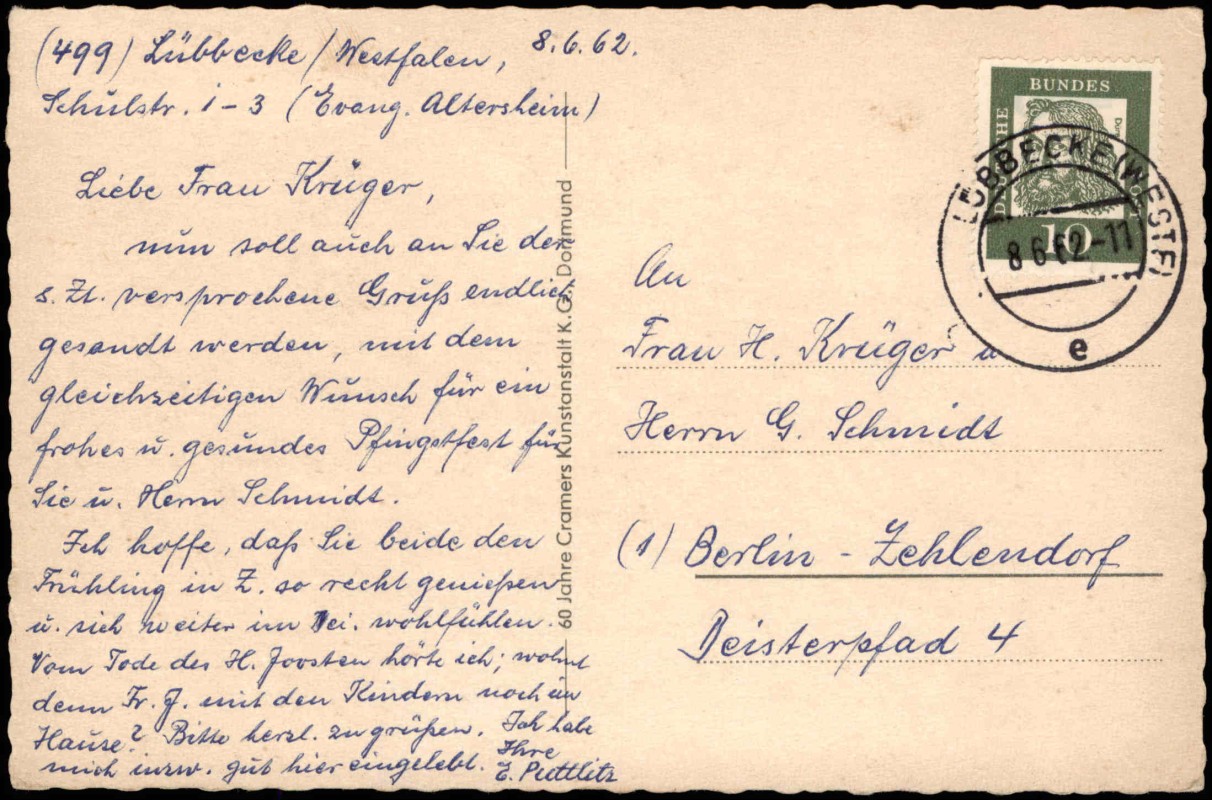 (499) Lübbecke / Westfalen, 8.6.62.
Schulstr. 1-3 (Evang. Altersheim)
Liebe Frau Krüger,
nun soll auch an Sie der
s. Zt. versprochene Gruß endlich
gesandt werden, mit dem
gleichzeitigen Wunsch für ein
frohes u. gesundes Pfingstfest für
Sie u. Herrn Schmidt.
Ich hoffe, daß Sie beide den
Frühling in Z. so recht genießen
u. sich weiter im wohlfühlen.
Vom Tode des H. Joosten hörte ich; wohnt
denn Fr. J. mit den Kindern noch im
Hause? Bitte herzl. zu grüßen. Ich habe
mich inzw. gut hier eingelebt. Ihre
E. Puttlitz
60 Jahre Cramers Kunstanstalt K.G., Dortmund
BUNDES
10
LÜBBECKE (WESTF)
8.6.62-11
e
An
Frau H. Krüger u
Herrn G. Schmidt
(1) Berlin - Zehlendorf
Deisterpfad 4